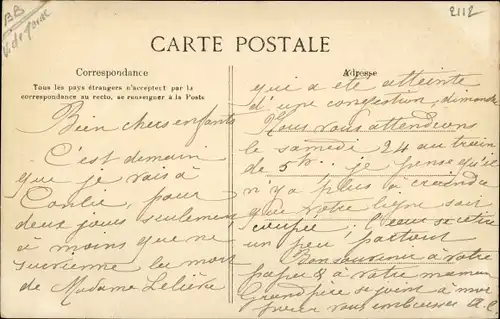 BB
2112
CARTE POSTALE
Correspondance
Tous les pays étrangers n'acceptent par la
correspondance au recto, se renseigner à la Poste
Adresse
Bien chers enfants
C'est demain
que je vais à
Conlie, pour
deux jours seulement
à moins que ne
survienne la mort
de Madame Lelièvre
qui a été atteinte
d'une congestion, dimanche
Nous vous attendrons
le samedi 24 au train
de 5h.. je pense qu'il
n'y a plus à craindre
que votre ligne soit
coupée; l'eau se retire
un peu partout
Bon souvenir à votre
papa & à votre maman
Grand père se joint à moi
pour vous embrasser